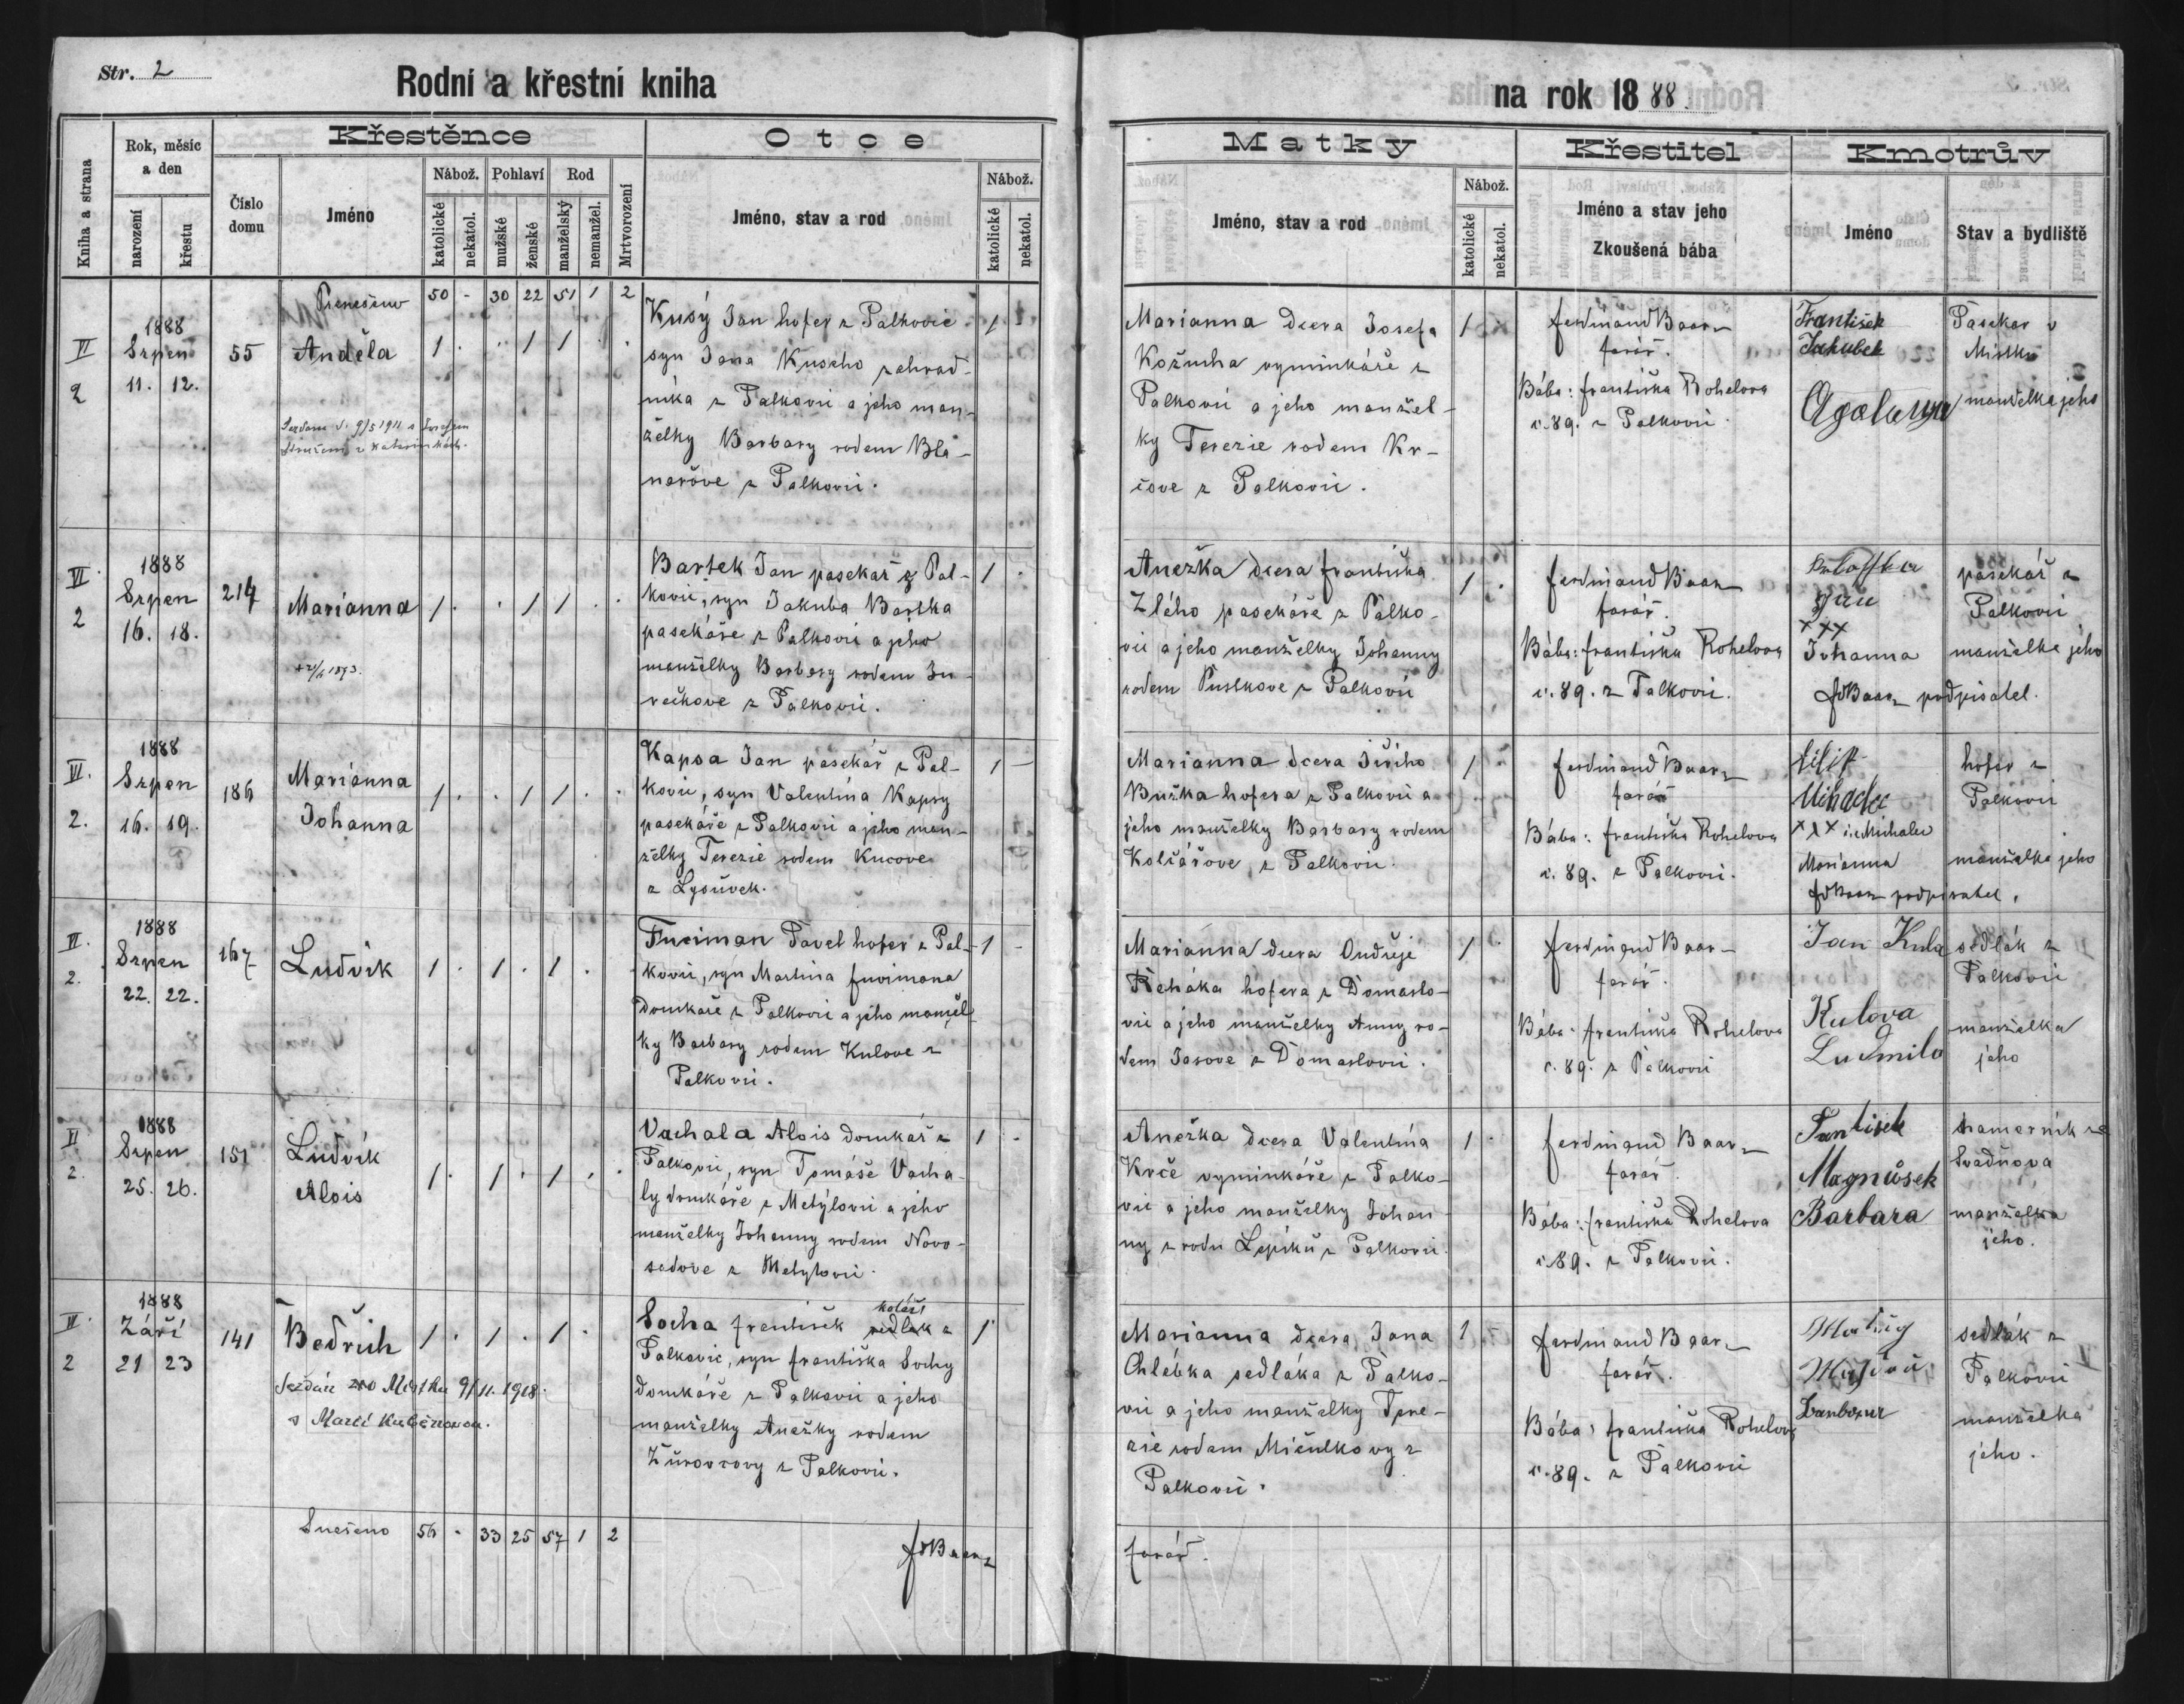 Str. 2
Rodní a křestní kniha
na rok 1888
Kniha a strana
Rok, měsíc
a den
narození
křestu
Číslo
domu
Křestěnce
Jméno
Nábož.
katolické
nekatol.
Pohlaví
mužské
ženské
Rod
manželský
nemanžel.
Mrtvorození
Otce
Jméno, stav a rod
Nábož.
katolické
nekatol.
Matky
Jméno, stav a rod
Nábož.
katolické
nekatol.
Křestitel
Jméno a stav jeho
Zkoušená bába
Kmotrův
Jméno
Stav a bydliště
Přenešeno 50 - 30 22 51 1 2
VI
2
1888
Srpen
11. 12.
55
Anděla
1 . . 1 1 . .
Kusý Jan hofer z Palkovic
syn Jana Kuseho zahrad-
níka z Palkovic a jeho man-
želky Barbary rodem Bla-
narove z Palkovic.
1
Marianna dcera Josefa
Kožucha vyminkáře z
Palkovic a jeho manžel-
ky Terezie rodem Kr-
čove z Palkovic.
1
Ferdinand Baar
farář.
Bába: Františka Rohelova
č. 89. z Palkovic.
František
Jakubek
Pasekar v
Místku
manželka jeho
VI
2
1888
Srpen
16. 18.
214
Marianna
1 . . 1 1 . .
Bartek Jan pasekář z Pal-
kovic, syn Jakuba Bartka
pasekáře z Palkovic a jeho
manželky Barbary rodem Ju-
rečkove z Palkovic.
1
Anežka dcera Františka
Zlého pasekáře z Palko-
vic a jeho manželky Johanny
rodem Pustkove z Palkovic
1
Ferdinand Baar
farář.
Bába: Františka Rohelova
č. 89. z Palkovic.
Jan
xxx
Johanna
FdBaar podpisatel.
pasekář z
Palkovic
manželka jeho
VI.
2.
1888
Srpen
16. 19.
186
Marianna
Johanna
1 . . 1 1 . .
Kapsa Jan pasekář z Pal-
kovic, syn Valentina Kapsy
pasekáře z Palkovic a jeho man-
želky Terezie rodem Kucove
z Lysůvek.
1
Marianna dcera Jiřího
Bužka hofera z Palkovic a
jeho manželky Barbary rodem
Kolčářove z Palkovic.
1
Ferdinand Baar
farář
Bába: Františka Rohelova
č. 89. z Palkovic.
Filip
Mihalec
xxx Michalec
Marianna
FdBaar podpisatel.
hofer z
Palkovic
manželka jeho
VI.
2.
1888
Srpen
22. 22.
167
Ludvík
1 . 1 . 1 .
Fuciman Pavel hofer z Pal-
kovic, syn Martina Fucimana
domkaře z Palkovic a jeho manžel-
ky Barbary rodem Kulove z
Palkovic.
1
Marianna dcera Ondřeje
Řeháka hofera z Domaslo-
vic a jeho manželky Anny ro-
dem Jasove z Domaslovic.
1
Ferdinand Baar
farář.
Bába: Františka Rohelova
č. 89. z Palkovic
Jan Kula
Kulova
Ludmila
sedlák z
Palkovic
manželka
jeho
VI
2.
1888
Srpen
25. 26.
151
Ludvík
Alois
1 . 1 . 1 . .
Vachala Alois domkář z
Palkovic, syn Tomáše Vacha-
ly domkáře z Metylovic a jeho
manželky Johanny rodem Novo-
sadove z Metylovic.
1
Anežka dcera Valentina
Krče vyminkáře z Palko-
vic a jeho manželky Johan-
ny z rodu Lepíků z Palkovic.
1
Ferdinand Baar
farář.
Bába: Františka Rohelova
č. 89. z Palkovic.
Magnůsek
Barbara
Sviadnova
manželka
jeho.
VI.
2
1888
Září
21 23
141
Bedřich
1 . 1 . 1 .
Sezdán v Místku 9/11. 1918.
Socha František sedlak z
kolář
Palkovic, syn Františka Sochy
domkáře z Palkovic a jeho
manželky Anežky rodem
Žurovcovy z Palkovic.
1
Marianna dcera Jana
Chlébka sedláka z Palko-
vic a jeho manželky Tere-
zie rodem Mičulkovy z
Palkovic.
1
Ferdinand Baar
farář.
Bába: Františka Rohelova
č. 89. z Palkovic
sedlák z
Palkovic
manželka
jeho.
Snešeno 56 . 33 25 57 1 2
FdBaar
farář.